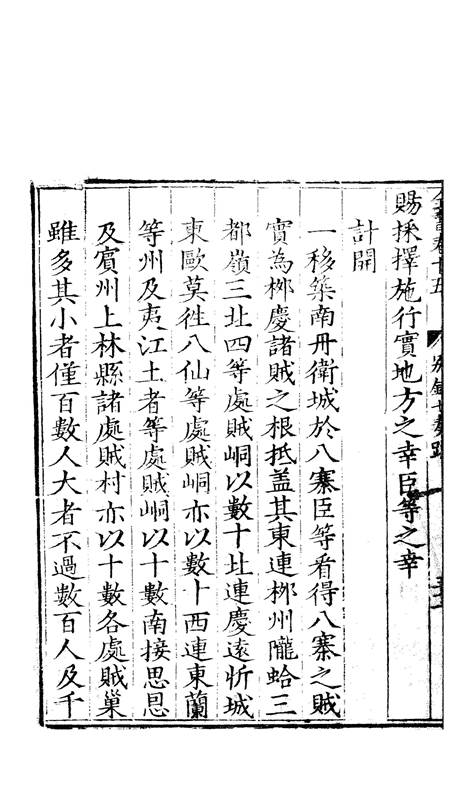 全書卷十五 別錄七奏疏
賜採擇施行實地方之幸臣等之幸
計開
一移築南丹衛城於八寨臣等看得八寨之賊
實為栁慶諸賊之根抵盖其東連栁州隴蛤三
都嶺三北四等處賊峒以數十北連慶遠忻城
東歐莫徃八仙等處賊峒亦以數十西連東蘭
等州及夷江土者等處賊峒以十數南接思恩
及賓州上林縣諸處賊村亦以十數各處賊巢
雖多其小者僅百數人大者不過數百人及千